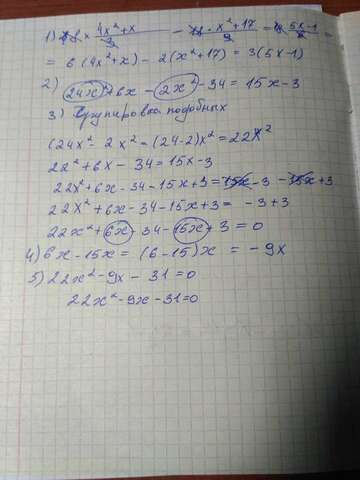 1) 6 × 4x²+x / 3 - x²+17 / 9 = 5x-1 / 2 =
= 6 (4x²+x) - 2(x²+17) = 3(5x-1)
2) 24x²+6x - 2x² - 34 = 15x-3
3) Группировка подобных
(24x² - 2x² = (24-2)x² = 22x²
22² + 6x - 34 = 15x-3
22x² + 6x - 34 - 15x + 3 = 15x - 3 - 15x + 3
22x² + 6x - 34 - 15x + 3 = -3 + 3
22x² + 6x - 34 - 15x + 3 = 0
4) 6x - 15x = (6-15)x = -9x
5) 22x² - 9x - 31 = 0
22x² - 9x - 31 = 0